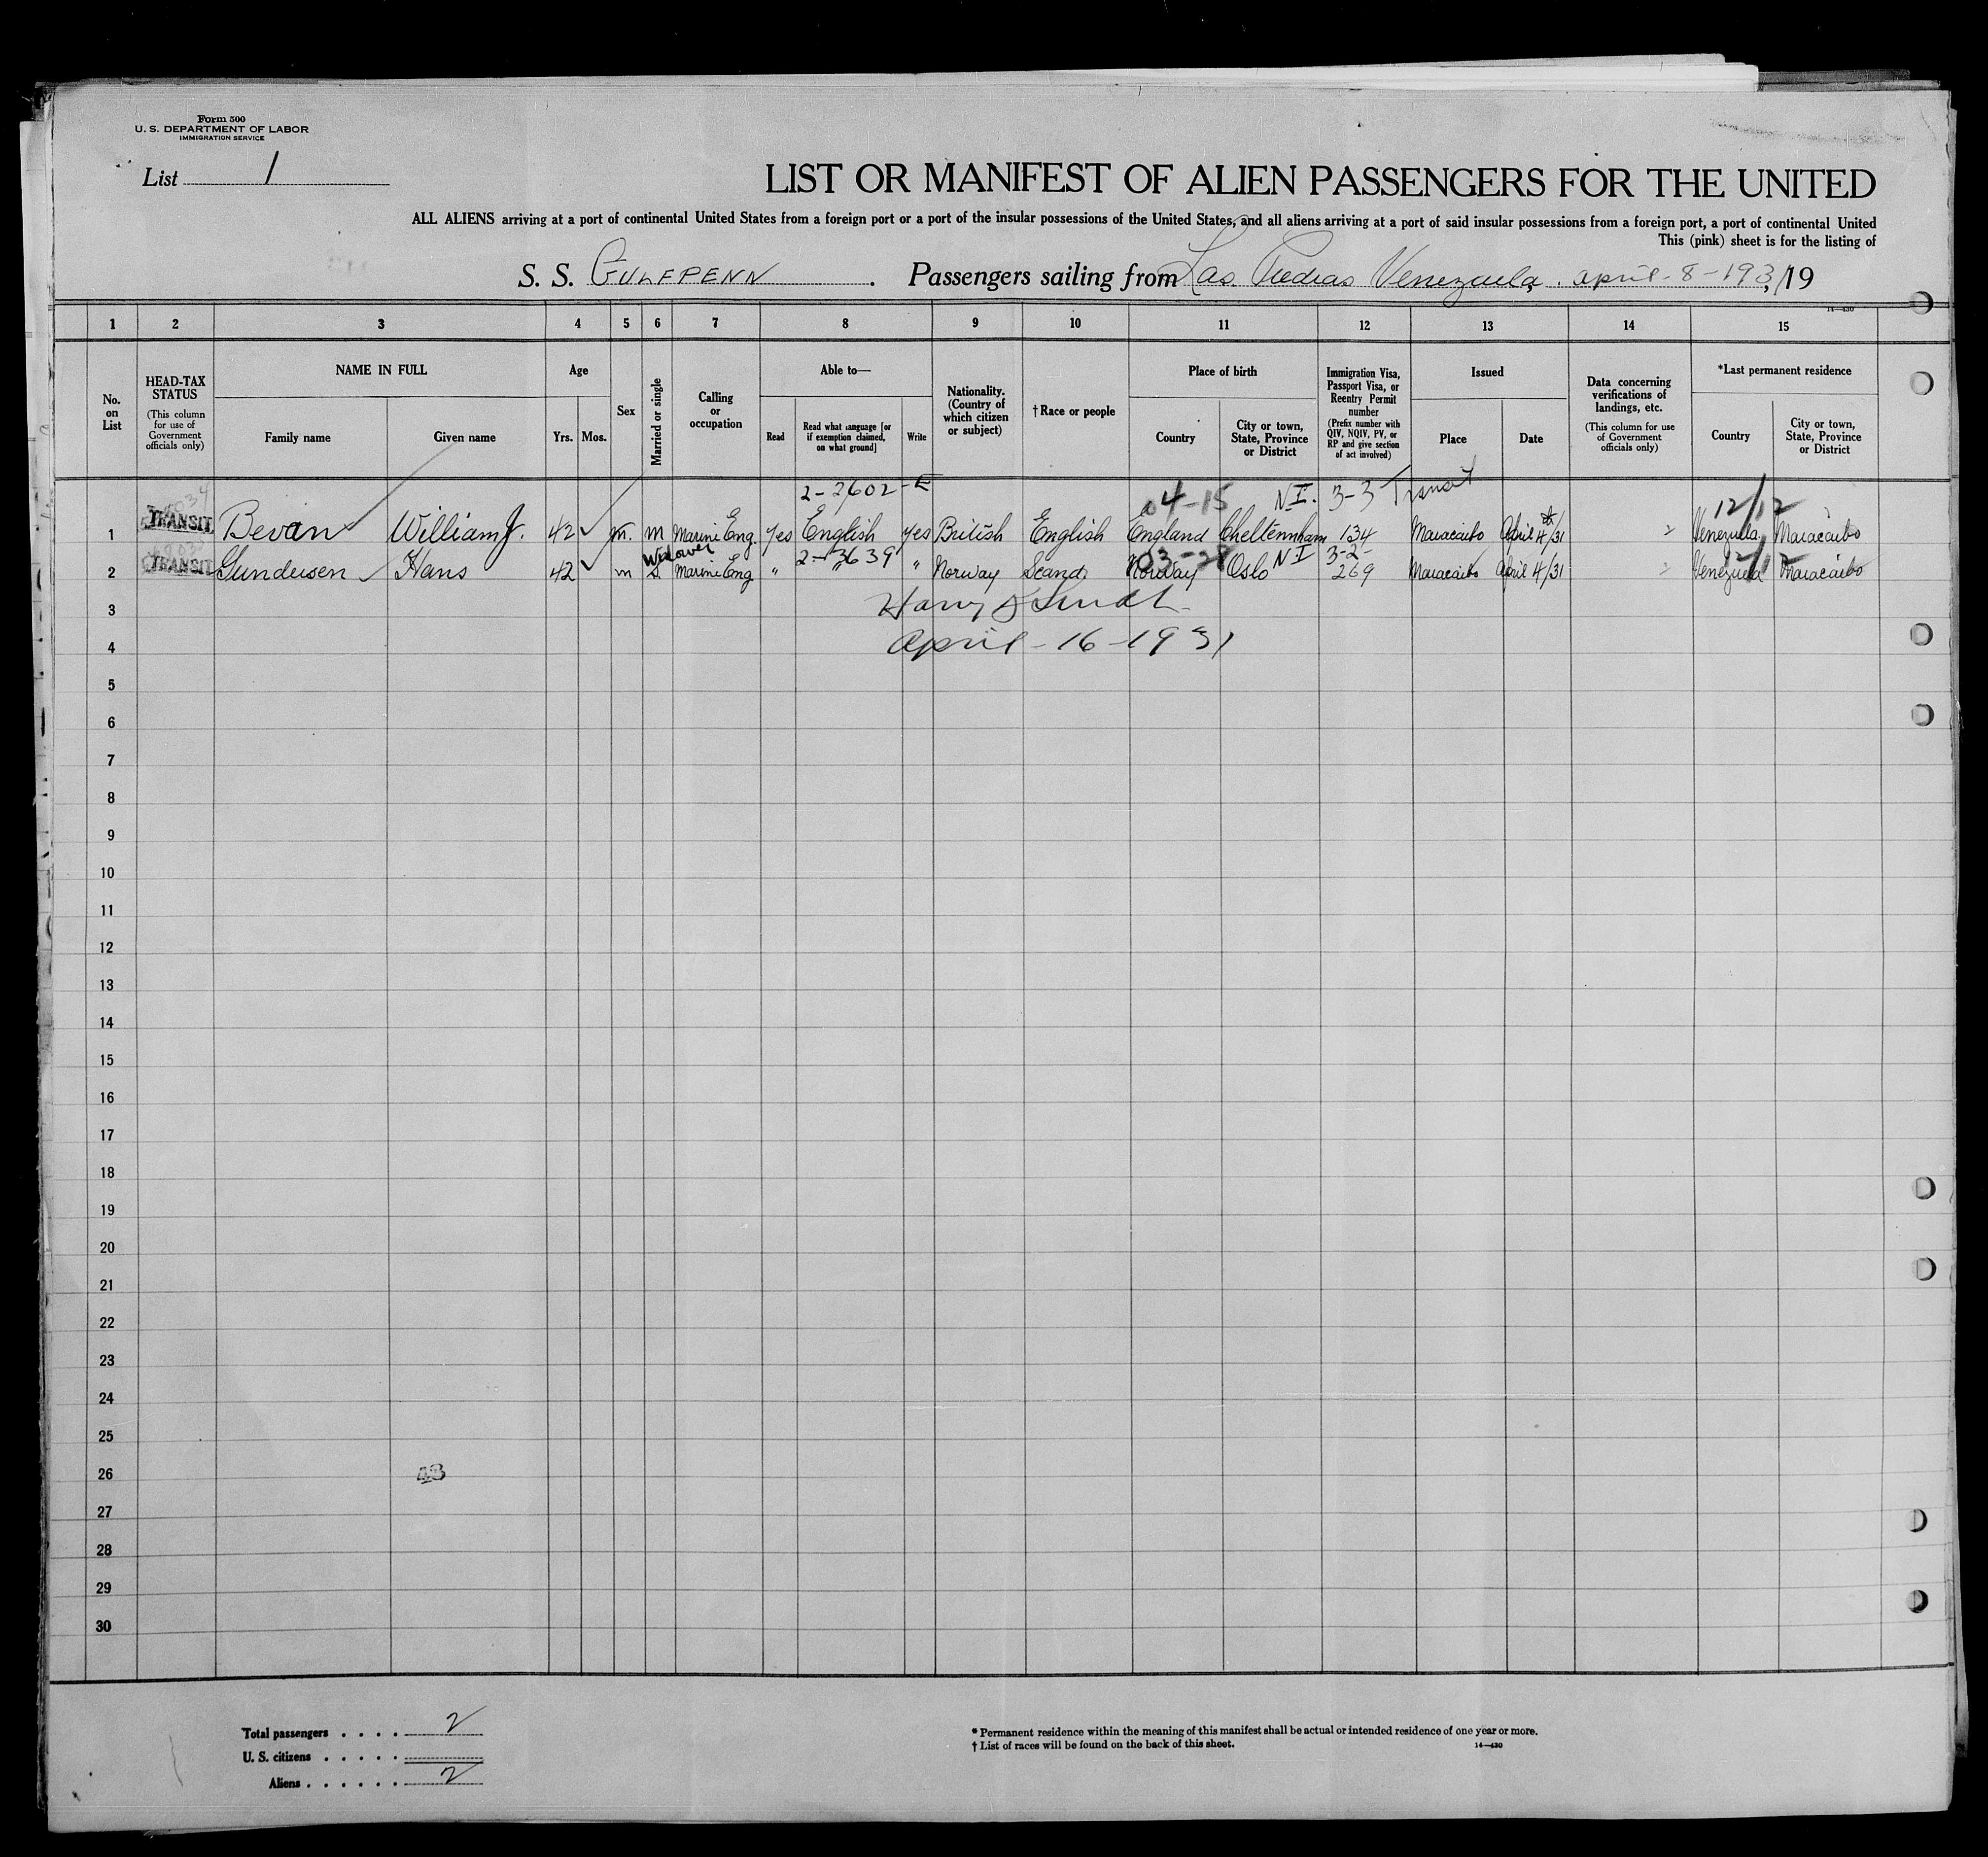 Form 500
U. S. DEPARTMENT OF LABOR
IMMIGRATION SERVICE
List 1
LIST OR MANIFEST OF ALIEN PASSENGERS FOR THE UNITED
ALL ALIENS arriving at a port of continental United States from a foreign port or a port of the insular possessions of the United States, and all aliens arriving at a port of said insular possessions from a foreign port, a port of continental United
This (pink) sheet is for the listing of
S. S. GULFPENN. Passengers sailing from Las Piedras Venezuela, april-8-1931, 19
14—430
1 2 3 4 5 6 7 8 9 10 11 12 13 14 15
No. on List
HEAD-TAX STATUS
(This column for use of Government officials only)
NAME IN FULL
Family name
Given name
Age
Yrs.
Mos.
Sex
Married or single
Calling or occupation
Able to—
Read
Read what language [or if exemption claimed, on what ground]
Write
Nationality. (Country of which citizen or subject)
† Race or people
Place of birth
Country
City or town, State, Province or District
Immigration Visa, Passport Visa, or Reentry Permit number
(Prefix number with QIV, NQIV, PV, or RP and give section of act involved)
Issued
Place
Date
Data concerning verifications of landings, etc.
(This column for use of Government officials only)
*Last permanent residence
Country
City or town, State, Province or District
2-2602-E 04-15 N I. 3-3 Transit 12/12
1 TRANSIT Bevan William J. 42 m. m Marine Eng. Yes English Yes British English England Cheltennham 134 Maracaibo April 4/31 Venezuela Maracaibo
Widower 2-3639 03-28 N I 3-2- 12/12
2 TRANSIT Gundersen Hans 42 m S. Marine Eng " " Norway Scand. Norway Oslo 269 Maracaibo April 4/31 Venezuela Maracaibo
3 Harry Smith
4 April-16-1931
5
6
7
8
9
10
11
12
13
14
15
16
17
18
19
20
21
22
23
24
25
26
27
28
29
30
Total passengers . . . . 2
U. S. citizens . . . . .
Aliens . . . . . . 2
* Permanent residence within the meaning of this manifest shall be actual or intended residence of one year or more.
† List of races will be found on the back of this sheet.
14—430